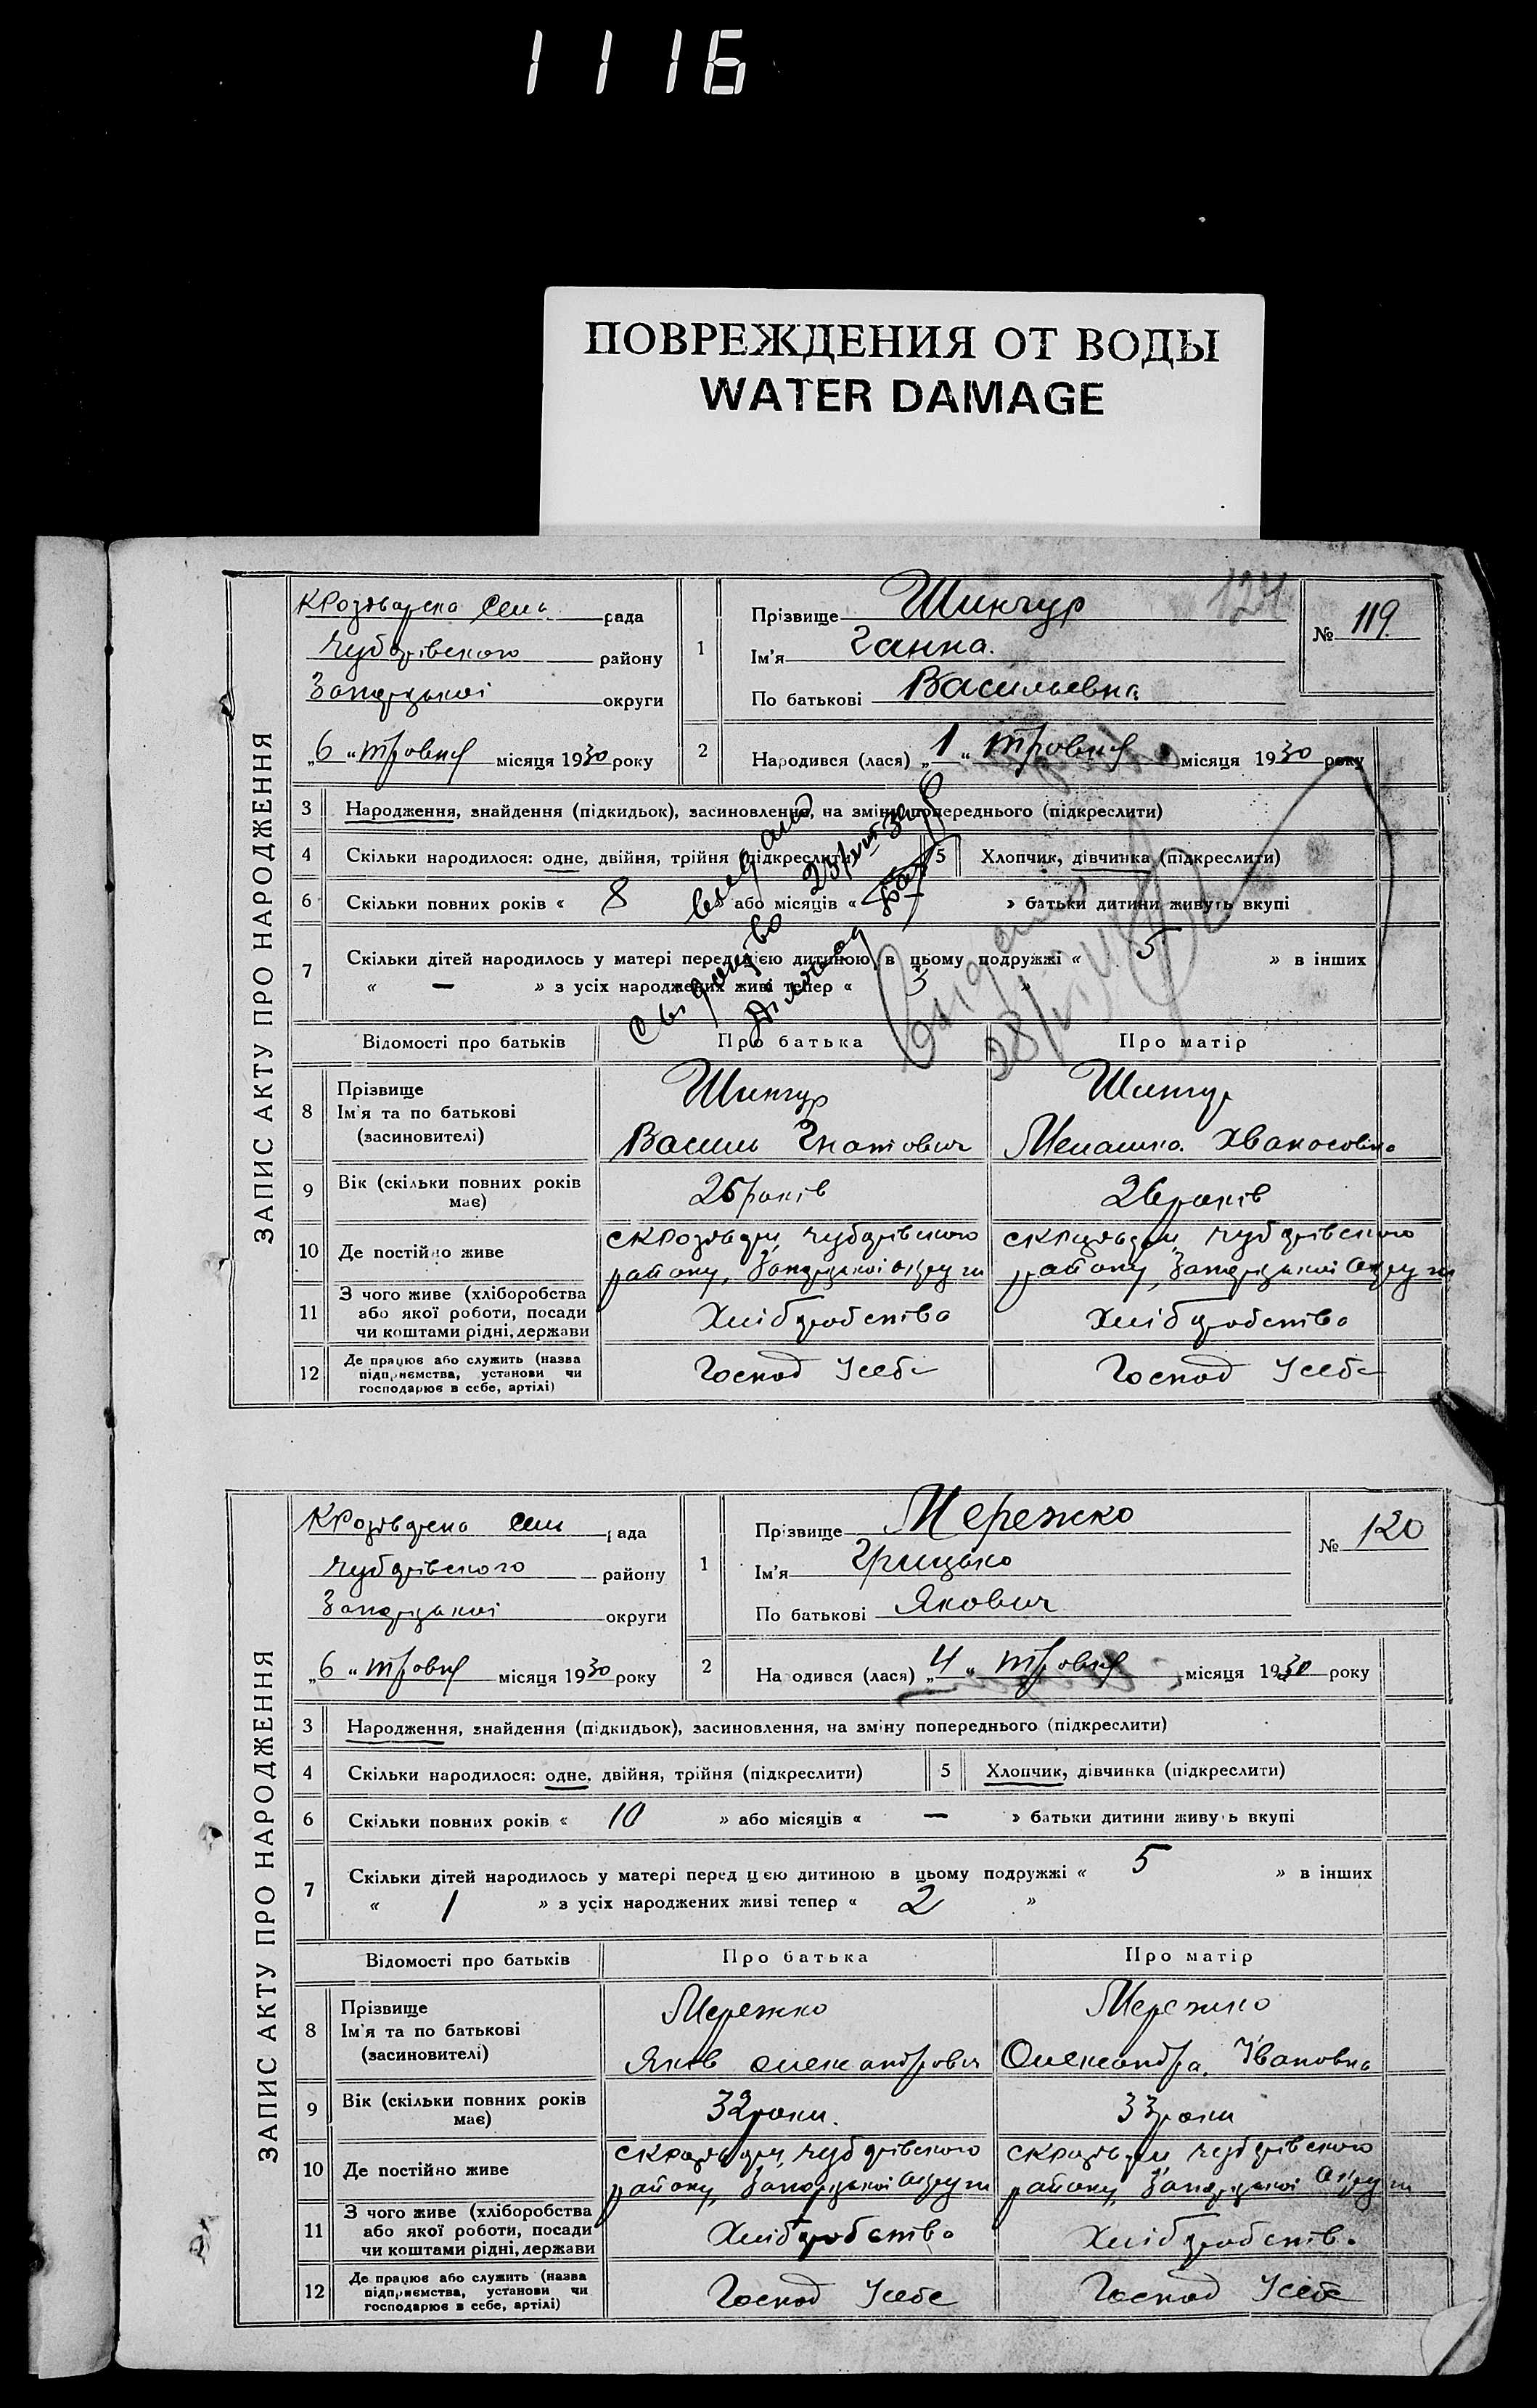 1116
ПОВРЕЖДЕНИЯ ОТ ВОДЫ
WATER DAMAGE
ЗАПИС АКТУ ПРО НАРОДЖЕННЯ
рада
району
округи
„6“ травня місяця 1930 року
1
Прізвище Шинчур
Ім'я Ганна.
По батькові Васильевна
124
№ 119
2 Народився (лася) „1“ травня місяця 1930 року
3 Народження, знайдення (підкидьок), засиновлення, на зміну попереднього (підкреслити)
4 Скільки народилося: одне, двійня, трійня (підкреслити)
5 Хлопчик, дівчинка (підкреслити)
6 Скільки повних років « 8 » або місяців « » батьки дитини живуть вкупі
7 Скільки дітей народилось у матері перед цією дитиною в цьому подружжі « 5 » в інших
« — » з усіх народжених живі тепер « »
Відомості про батьків Про батька Про матір
8 Прізвище
Ім'я та по батькові
(засиновителі)
Шинчур
Василь Гнатович
Шинчур
Мелашка
9 Вік (скільки повних років має)
26 років
10 Де постійно живе
району,
району,
11 З чого живе (хліборобства
або якої роботи, посади
чи коштами рідні, держави
Хліборобство
Хліборобство
12 Де працює або служить (назва
підприємства, установи чи
господарює в себе, артілі)
Господ Усебе
Господ Усебе
ЗАПИС АКТУ ПРО НАРОДЖЕННЯ
рада
району
округи
„6“ травня місяця 1930 року
1
Прізвище Мережко
Ім'я Грицько
По батькові Якович
№ 120
2 На одився (лася) „4“ травня місяця 1930 року
3 Народження, знайдення (підкидьок), засиновлення, на зміну попереднього (підкреслити)
4 Скільки народилося: одне, двійня, трійня (підкреслити)
5 Хлопчик, дівчинка (підкреслити)
6 Скільки повних років « 10 » або місяців « — » батьки дитини живуть вкупі
7 Скільки дітей народилось у матері перед цією дитиною в цьому подружжі « 5 » в інших
« 1 » з усіх народжених живі тепер « 2 »
Відомості про батьків Про батька Про матір
8 Прізвище
Ім'я та по батькові
(засиновителі)
Мережко
Яків Олександрович
Мережко
Олександра. Івановна
9 Вік (скільки повних років має)
32 роки.
33 роки
10 Де постійно живе
району,
району,
11 З чого живе (хліборобства
або якої роботи, посади
чи коштами рідні, держави
Хліборобство
Хліборобств.
12 Де працює або служить (назва
підприємства, установи чи
господарює в себе, артілі)
Господ Усебе
Господ Усебе